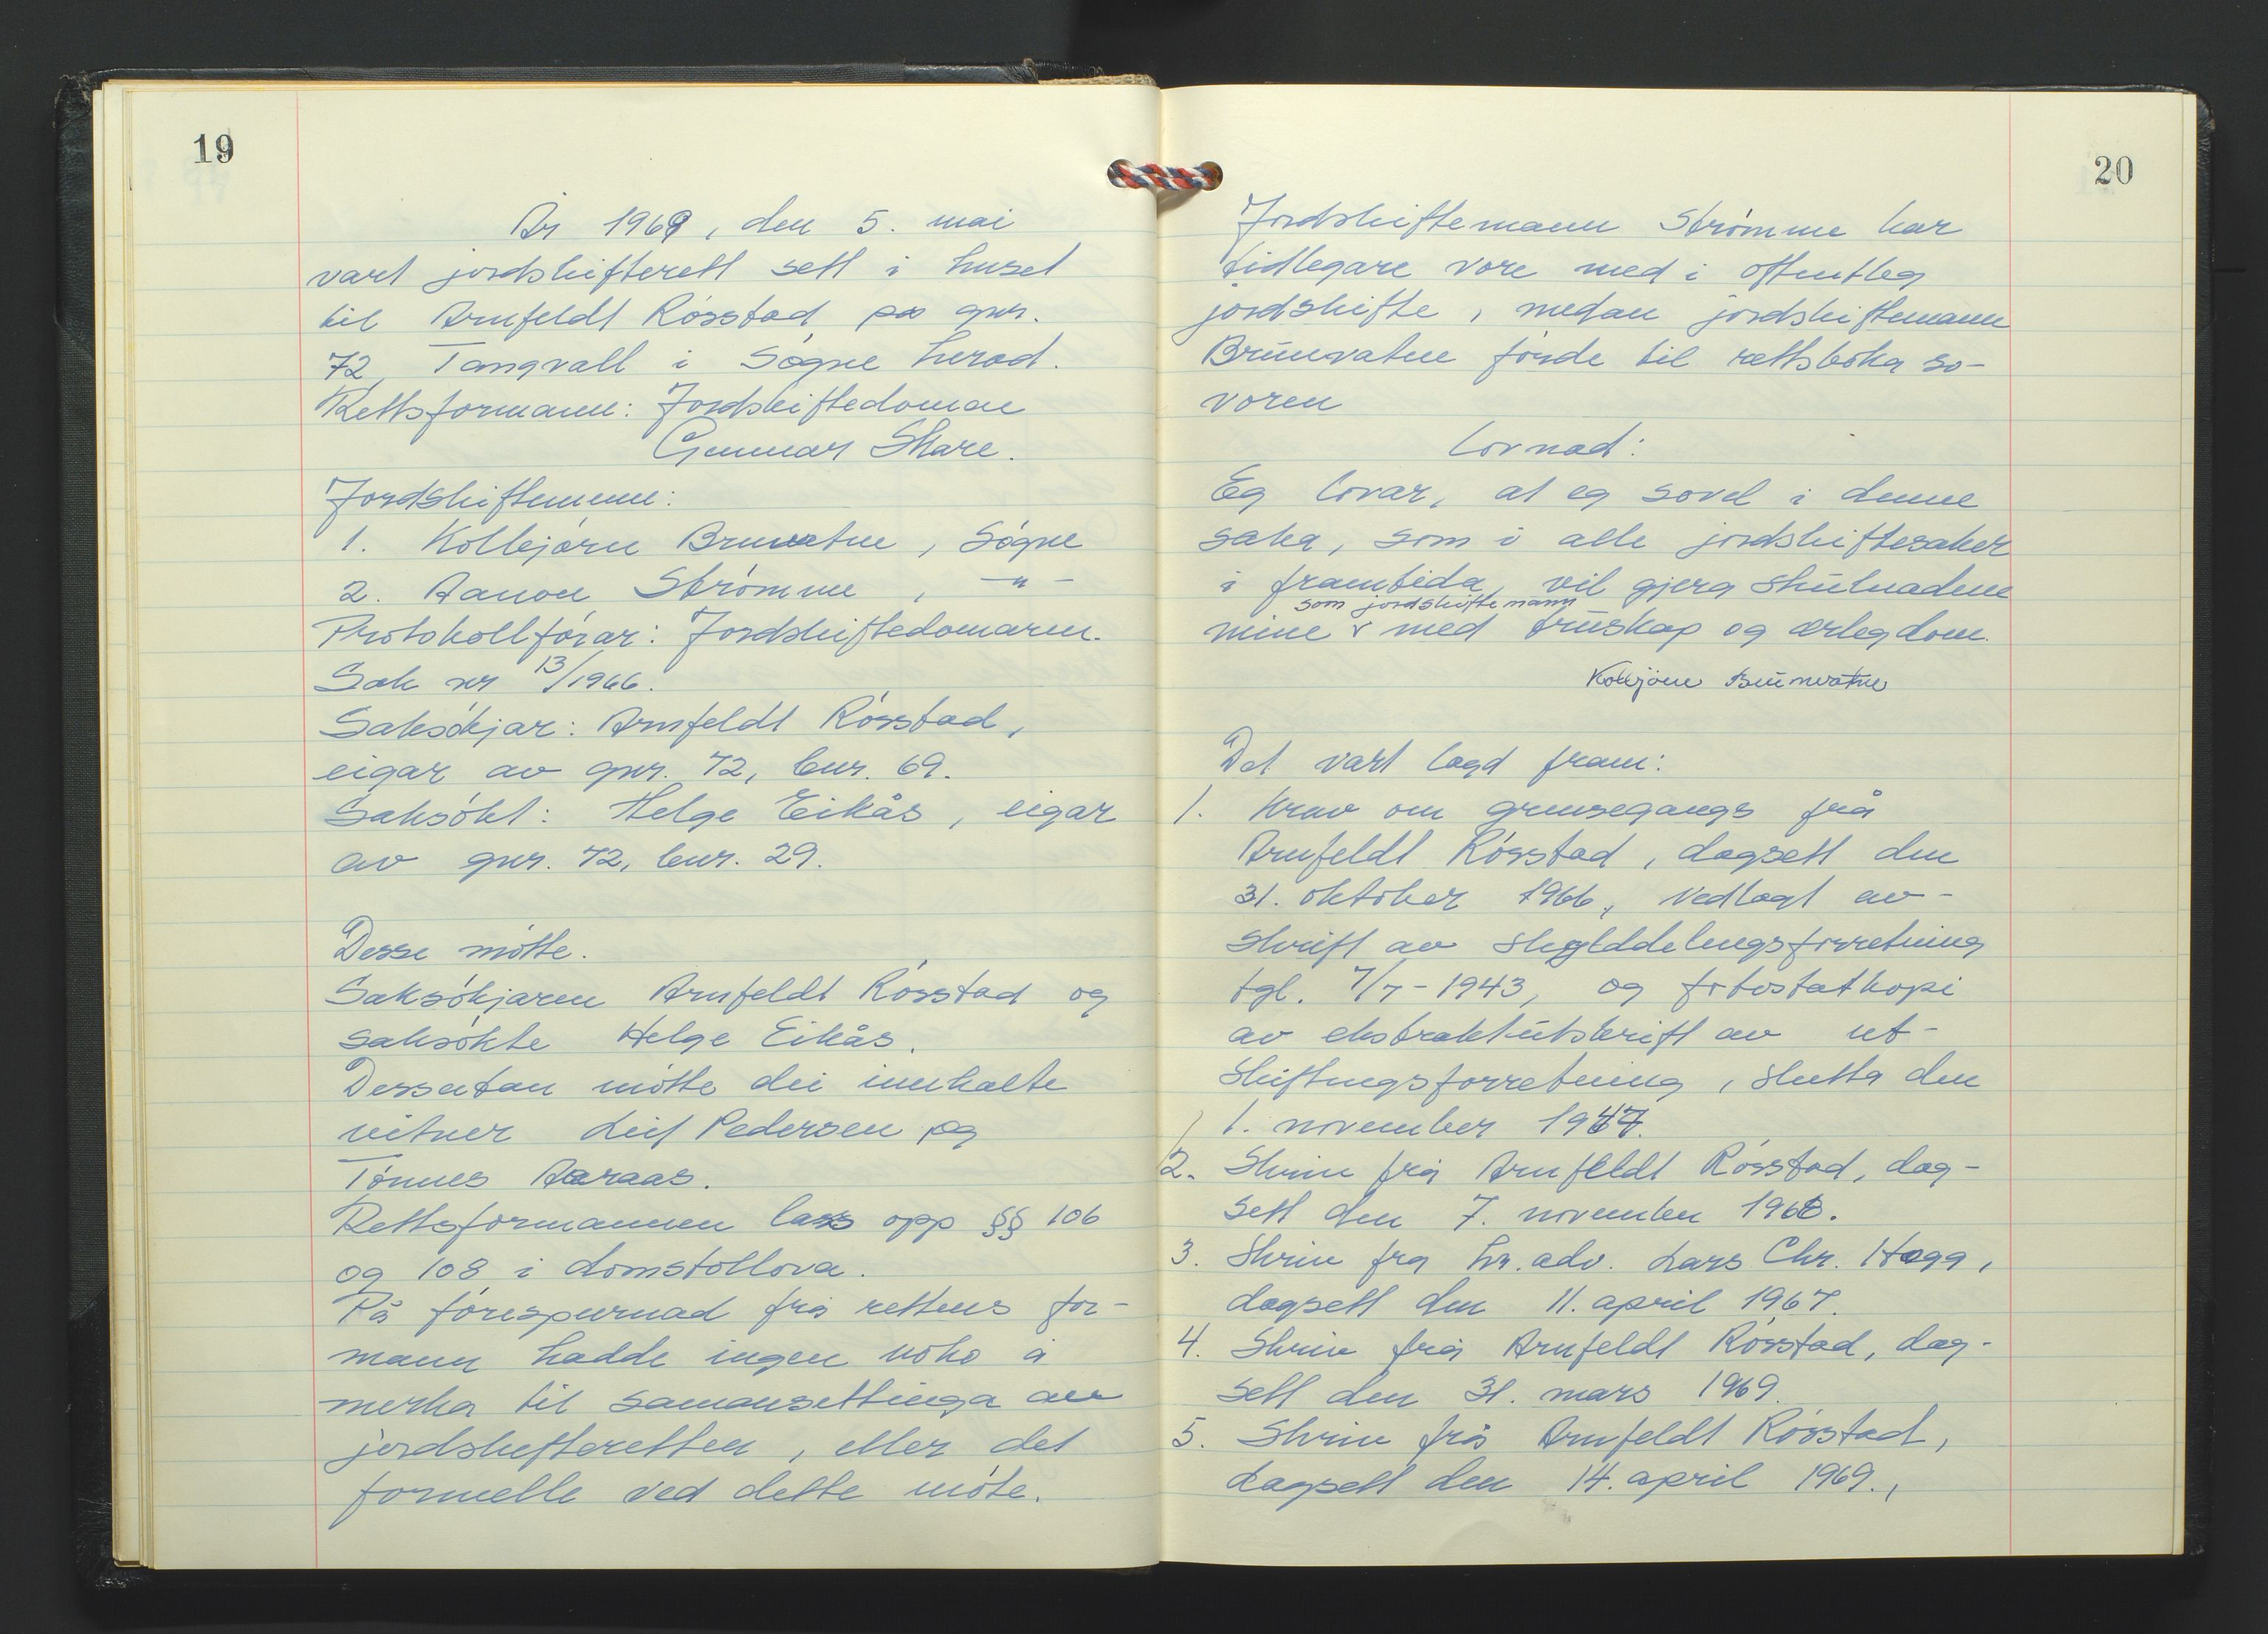 19
År 1969, den 5. mai
vart jordskifterett sett i huset
til Arnfeldt Røsstad på gnr.
72, Tangvall i Søgne herad.
Rettsformann: Jordskiftedomar
Gunnar Skare.
Jordskiftemenn:
1. Kolbjørn Brunvatne, Søgne
2. Aanon Strømme, -"-
Protokollførar: Jordskiftedomaren.
Sak nr 13/1966.
Saksøkjar: Arnfeldt Røsstad,
eigar av gnr. 72, bnr. 69.
Saksøkt: Helge Eikås, eigar
av gnr. 72, bnr. 29.
Desse møtte.
Saksøkjaren Arnfeldt Røsstad og
saksøkte Helge Eikås.
Dessutan møtte dei innkalte
vitner Leif Pedersen og
Tønnes Aaraas.
Rettsformannen lass opp §§ 106
og 108 i domstollova.
På førespurnad frå rettens for-
mann hadde ingen noko å
merka til samansettinga av
jordskifteretten, eller det
formelle ved dette møte.
20
Jordskiftemann Strømme har
tidlegare vore med i offentleg
jordskifte, medan jordskiftemann
Brunvatne førde til rettsboka so-
voren
Lovnad:
Eg lovar, at eg sovel i denne
saka, som i alle jordskiftesaker
i framtida, vil gjera skulnadene
som jordskiftemann
mine v med truskap og ærlegdom.
Kolbjørn Brunvatne
Det vart lagd fram:
1. Krav om grensegangs frå
Arnfeldt Røsstad, dagsett den
31. oktober 1966, vedlagt av-
skrift av skylddelingsforretning
tgl. 7/7-1943, og fotostatkopi
av ekstraktutskrift av ut-
skiftingsforretning, slutta den
1. november 1947.
2. Skriv frå Arnfeldt Røsstad, dag-
sett den 7. november 1968.
3. Skriv fra h.r.adv. Lars Chr. Hagg,
dagsett den 11. april 1967.
4. Skriv frå Arnfeldt Røsstad, dag-
sett den 31. mars 1969.
5. Skriv frå Arnfeldt Røsstad,
dagsett den 14. april 1969.,